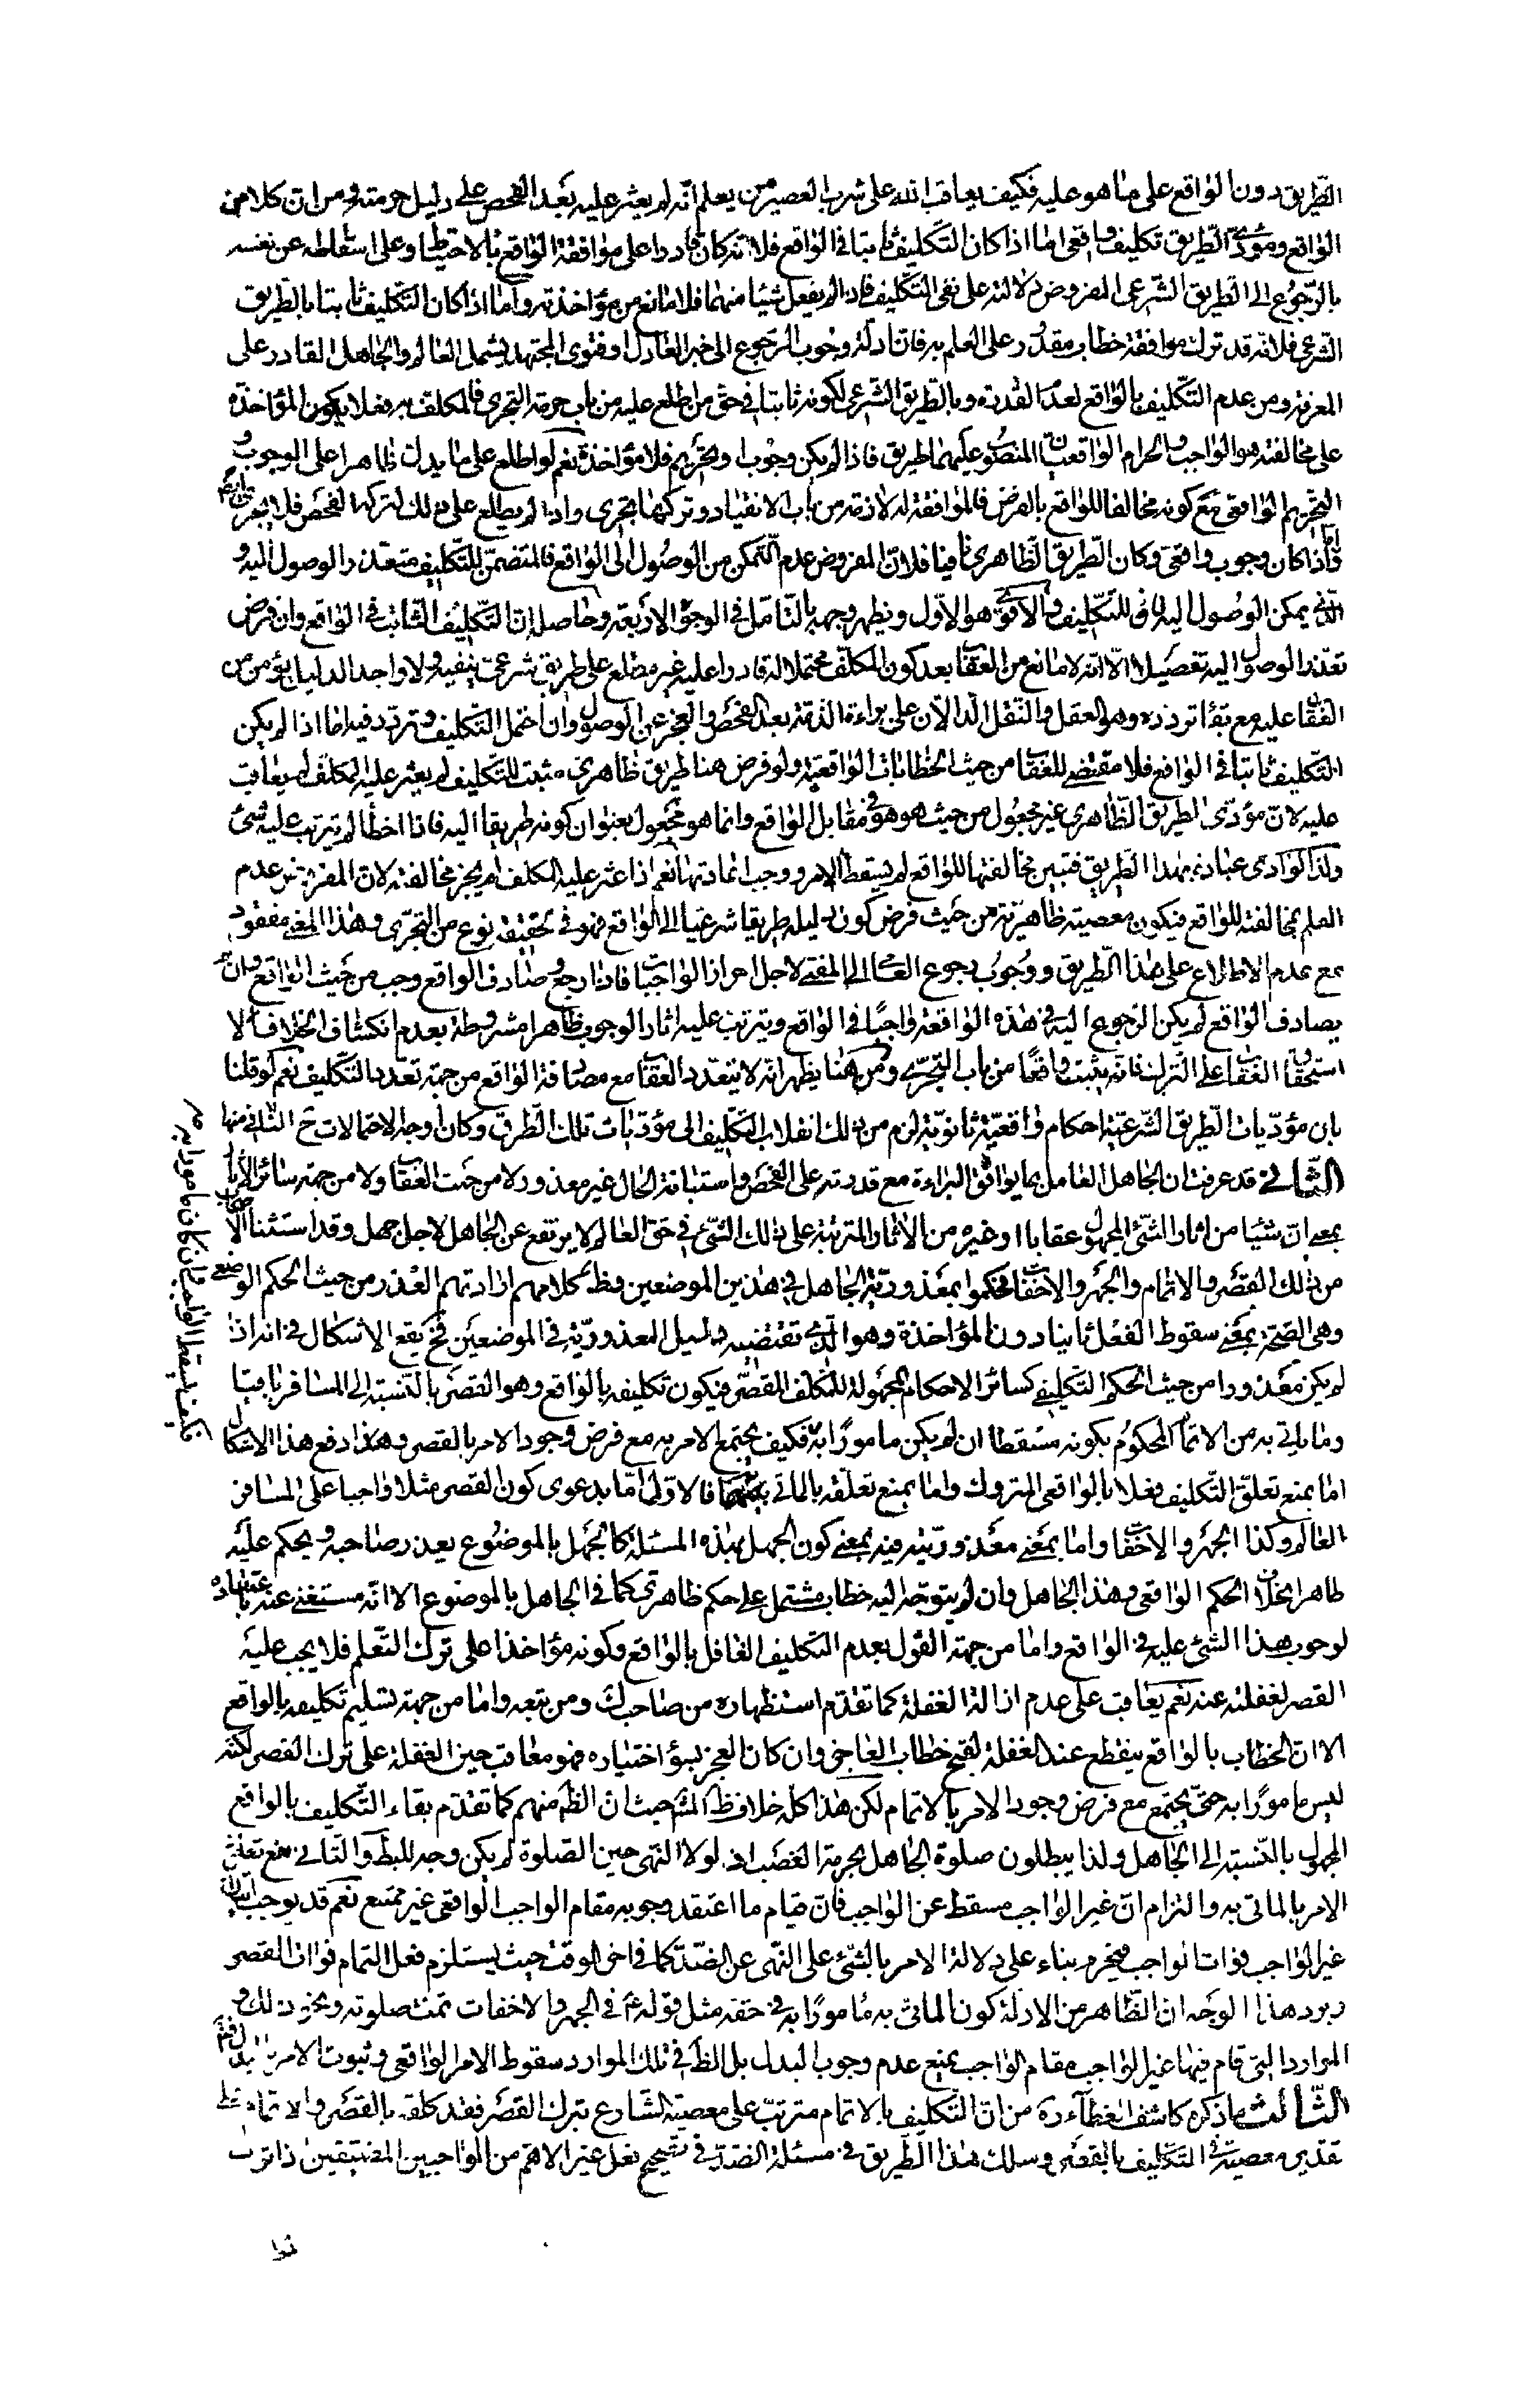 الطّريق دون الواقع على ما هو عليه فكيف يعاقب الله على شرب العصير من يعلم انّه لم يعثر عليه بعد الفحص على دليل حرمته ومن ان كلا من
الواقع ومؤدّى الطّريق تكليف واقعى اما اذا كان التّكليف ثابتا فى الواقع فلانّه كان قادرا على موافقة الواقع بالاحتياط وعلى اسقاطه عن نفسه
بالرّجوع الى الطّريق الشّرعى المفروض دلالته على نفى التّكليف فاذا لم يفعل شيئا منهما فلا مانع من مؤاخذته وامّا اذا كان التّكليف ثابتا بالطّريق
الشّرعى فلانّه قد ترك موافقة خطاب مقدور على العلم به فانّ ادلّة وجوب الرّجوع الى خبر العادل او فتوى المجتهد يشمل العالم والجاهل القادر على
المعرفة ومن عدم التّكليف بالواقع لعدم القدرة وبالطّريق الشّرعى لكونه ثابتا فى حق من اطلع عليه من باب حرمة التجرى فالمكلف به فعلا يكون المؤاخذة
على مخالفته هو الواجب والحرام الواقعيان المنصوب عليهما طريق فاذا لم يكن وجوب او تحريم فلا مؤاخذة نعم لو اطلع على ما يدل ظاهرا على الوجوب و
التّحريم الواقعى مع كونه مخالفا للواقع بالفرض فالموافقة له لازمة من باب الانقياد وتركها تجرى واذا لم يطلع على ذلك لتركه الفحص فلا تجرى ايضا
وامّا اذا كان وجوب واقعى وكان الطّريق الظّاهرى نافيا فلانّ المفروض عدم التّمكن من الوصول الى الواقع فالمتضمن للتّكليف متعذر الوصول اليه و
الّذى يمكن الوصول اليه ناف للتّكليف والاقوى هو الاوّل ويظهر وجهه بالتّامّل فى الوجوه الاربعة وحاصله انّ التّكليف الثّابت فى الواقع وان فرض
تعذر الوصول اليه تفصيلا الّا انّه لا مانع من العقاب بعد كون المكلّف محتملا له قادرا عليه غير مطلع على طريق شرعى ينفيه ولا واجد الدليل يؤمن من
العقاب عليه مع بقاء تردّده وهو العقل والنّقل الدّالّان على براءة الذّمّة بعد الفحص والعجز عن الوصول وان احتمل التّكليف وتردّد فيه امّا اذا لم يكن
التّكليف ثابتا فى الواقع فلا مقتضى للعقاب من حيث الخطابات الواقعيّة ولو فرض هنا طريق ظاهرى مثبت للتّكليف لم يعثر عليه المكلّف لم يعاقب
عليه لانّ مؤدّى الطريق الظّاهرى غير مجعول من حيث هو هو فى مقابل الواقع وانما هو مجعول بعنوان كونه طريقا اليه فاذا اخطأ لم يترتب عليه شئ
ولذا لو ادى عبادة بهذا الطّريق فتبين مخالفتها للواقع لم يسقط الامر ووجب اعادتها نعم اذا عثر عليه المكلف لم يجز مخالفته لانّ المفروض عدم
العلم بمخالفته للواقع فيكون معصية ظاهريّة من حيث فرض كون دليله طريقا شرعيا الى الواقع فهو فى الحقيقة نوع من التجرّى وهذا المعنى مفقود
مع عدم الاطلاع على هذا الطّريق ووجوب رجوع العامى الى المفتى لاجل احراز الواجبات فاذا رجع وصادف الواقع وجب من حيث الواقع وان لم
يصادف الواقع لم يكن الرّجوع اليه فى هذه الواقعة واجبا فى الواقع ويترتب عليه اثار الوجوب ظاهرا مشروطة بعدم انكشاف الخلاف الا
استحقاق العقاب على الترك فانّه يثبت واقعا من باب التجرّى ومن هنا يظهر انّه لا يتعدد العقاب مع مصادفة الواقع من جهة تعدد التّكليف نعم لو قلنا
بان مؤدّيات الطّريق الشّرعيّة احكام واقعيّة ثانويّة لزم من ذلك انقلاب التّكليف الى مؤدّيات تلك الطّرق وكان اوجه الاحتمالات ح الثّانى منها
الثّانى قد عرفت ان الجاهل العامل بما يوافق البراءة مع قدرته على الفحص واستبانة الحال غير معذور لا من حيث العقاب ولا من جهة سائر الاثار
بمعنى انّ شيئا من اثار الشّئ المجهول عقابا او غيره من الاثار المترتبة على ذلك الشّئ فى حقّ العالم لا يرتفع عن الجاهل لاجل جهله وقد استثنى الاصحاب
من ذلك القصر والاتمام والجهر والاخفات فحكموا بمعذوريّة الجاهل فى هذين الموضعين وظ كلامهم ارادتهم العذر من حيث الحكم الوضعى
وهى الصّحّة بمعنى سقوط الفعل ثانيا دون المؤاخذة وهو الّذى تقتضيه دليل المعذوريّة فى الموضعين فح يقع الاشكال فى انه اذا
لم يكن معذورا من حيث الحكم التّكليفى كسائر الاحكام المجهولة للمكلّف المقصّر فيكون تكليفه بالواقع وهو القصر بالنّسبة الى المسافر باقيا
وما ياتى به من الاتمام المحكوم بكونه مسقطا ان لم يكن مامورا به فكيف يجتمع الامر به مع فرض وجود الامر بالقصر وهذا ودفع هذا الاشكال
فكيف يسقط الواجب وان كان مامورا به صح
امّا بمنع تعلّق التّكليف فعلا بالواقعى المتروك وامّا بمنع تعلّقه بالماتى به فالاوّل امّا بدعوى كون القصر مثلا واجبا على المسافر
العالم وكذا الجهر والاخفات وامّا بمعنى معذوريّته فيه بمعنى كون الجهل بهذه المسئلة كالجهل بالموضوع يعذر صاحبه ويحكم عليه
ظاهرا بخلاف الحكم الواقعى وهذا الجاهل وان لم يتوجّه اليه خطاب مشتمل على حكم ظاهرى كما فى الجاهل بالموضوع الا انّه مستغنى عنه باعتقاده
لوجوب هذا الشّئ عليه فى الواقع وامّا من جهة القول بعدم التّكليف الغافل بالواقع وكونه مؤاخذا على ترك التّعلم فلا يجب عليه
القصر لغفلته عنه نعم يعاقب على عدم ازالة الغفلة كما تقدّم استظهاره من صاحب ك ومن تبعه وامّا من جهة تسليم تكليفه بالواقع
الا انّ الخطاب بالواقع ينقطع عند الغفلة لقبح خطاب العاجز وان كان العجز بسوء اختياره فهو معاقب حين الغفلة على ترك القصر لكنّه
ليس مامورا به حتّى يجتمع مع فرض وجود الامر بالاتمام لكن هذا كلّه خلاف ظ المش حيث انّ الظ منهم كما تقدّم بقاء التّكليف بالواقع
المجهول بالنّسبة الى الجاهل ولذا يبطلون صلوة الجاهل بحرمة الغصب اذ لولا النّهى حين الصّلوة لم يكن وجه للبط والثّانى منع تعلّق
الامر بالماتى به والتزام انّ غير الواجب مسقط عن الواجب فانّ قيام ما اعتقد وجوبه مقام الواجب الواقعى غير ممتنع نعم قد يوجب اتيان
غير الواجب فوات الواجب فيحرم بناء على دلالة الامر بالشّئ على النّهى عن الضّدّ كما فى اخر الوقت حيث يستلزم فعل التمام فوات القصر
ويرد هذا الوجه انّ الظّاهر من الادلّة كون الماتى به مامورا به فى حقه مثل قوله ع فى الجهر والاخفات تمت صلوته ونحو ذلك و
الموارد الّتى قام فيها غير الواجب مقام الواجب يمنع عدم وجوب البدل بل الظ فى تلك الموارد سقوط الامر الواقعى وثبوت الامر بالبدل فتم
الثّالث ما ذكره كاشف الغطاء ره من انّ التّكليف بالاتمام مترتّب على معصية الشّارع بترك القصر فقد كلفه بالقصر والاتمام على
تقدير معصيته فى التّكليف بالقصر وسلك هذا الطّريق فى مسئلة الضّدّ فى تصحيح فعل غير الاهم من الواجبين المضيّقين اذا ترك